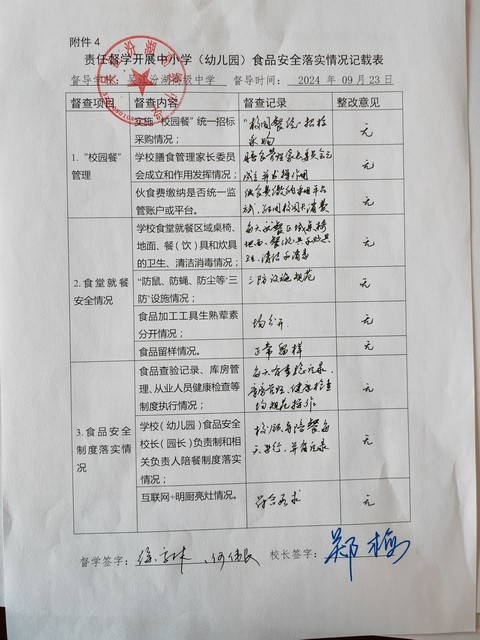 附件 4
责任督学开展中小学（幼儿园）食品安全落实情况记载表
督导学校：吴江汾湖高级中学 督导时间： 2024 年 09 月 23 日
督查项目 督查内容 督查记录 整改意见
1. "校园餐"管理
实施"校园餐"统一招标
采购情况；
"校园餐"统一招标
采购
无
学校膳食管理家长委员
会成立和作用发挥情况；
膳食管理家长委员会已
成立并发挥作用
无
伙食费缴纳是否统一监
管账户或平台。
伙食费缴纳采用平台
无
2. 食堂就餐
安全情况
学校食堂就餐区域桌椅、
地面、餐（饮）具和炊具
的卫生、清洁消毒情况；
每天就餐区域桌椅
地面、餐饮具和炊具
卫生、清洁和消毒
无
"防鼠、防蝇、防尘等'三
防'设施情况；
三防设施规范
无
食品加工工具生熟荤素
分开情况；
均分开.
无
食品留样情况。
正常留样
无
3. 食品安全
制度落实情
况
食品查验记录、库房管
理、从业人员健康检查等
制度执行情况；
库房管理、健康检查
均规范操作
无
学校（幼儿园）食品安全
校长（园长）负责制和相
关负责人陪餐制度落实
情况；
无
互联网+明厨亮灶情况。
符合要求
无
督学签字： 校长签字： 郑梅